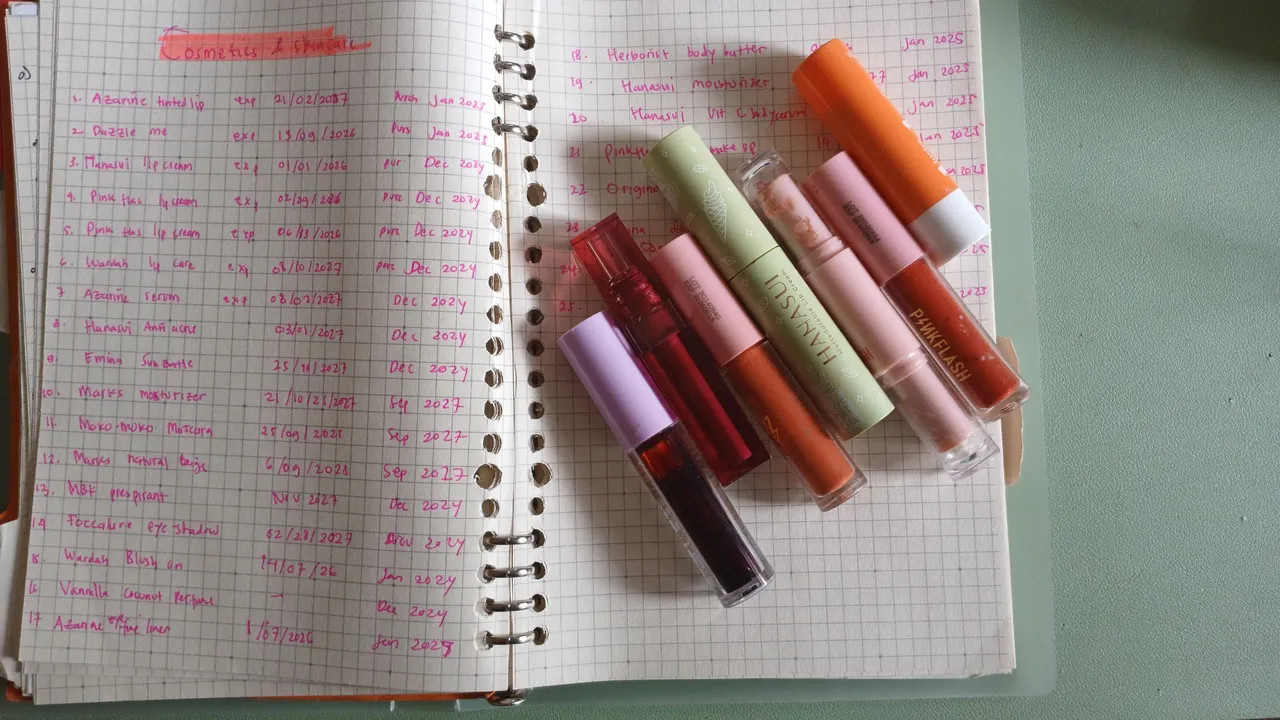 Cosmetics & skincare
1. Azarine tinted lip exp 21/02/2027 Jan 2025
2. Dazzle me exp 13/09/2026 Purc Jan 2025
3. Hanasui lip cream exp 01/01/2026 purc Dec 2024
4. Pink flas lip cream exp 02/09/2026 purc Dec 2024
5. Pink flas lip cream exp 06/13/2026 purc Dec 2024
6. Wardah lip care exp 08/10/2027 purc Dec 2024
7 Azarine serum exp 08/02/2027 Dec 2024
8. Hanasui Anti acne 03/01/2027 Dec 2024
9. Emina Sun Battle 25/10/2027 Dec 2024
10. Marks moisturizer 21/10/25/2027 Sep 2027
11. Moko-moko 25/09/2025 Sep 2027
12. Marks natural beige 6/09/2026 Sep 2027
13. Nov 2027 Dec 2024
14 eye-shadow 02/28/2027 2024
15. Wardah Blush on 14/07/26 Jan 2024
16 Vanilla coconut Perfume - Dec 2024
17 Azarine liner 1/07/2026 Jan 2025
18. Herborist body butter Jan 2025
19. Hanasui moisturizer 27 Jan 2025
20 Hanasui Vit C body serum Jan 2025
21 Pink make up 14 Jan 2025
22 2025
23
24.
25 2025
HANASUI
Mattedorable Lip Cream
PINKFLASH